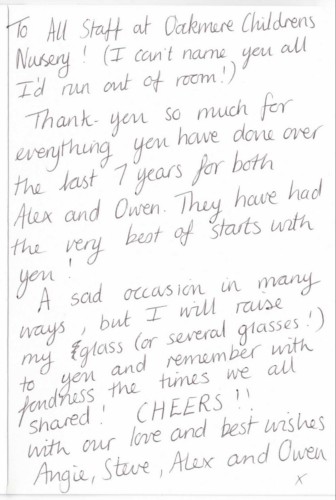 To All Staff at Oakmere Childrens
Nursery! (I can't name you all
I'd run out of room!)
Thank-you so much for
everything you have done over
the last 7 years for both
Alex and Owen. They have had
the very best of starts with
you!
A sad occasion in many
ways, but I will raise
my glass (or several glasses!)
to you and remember with
fondness the times we all
shared! CHEERS!!
with our love and best wishes
Angie, Steve, Alex and Owen
x